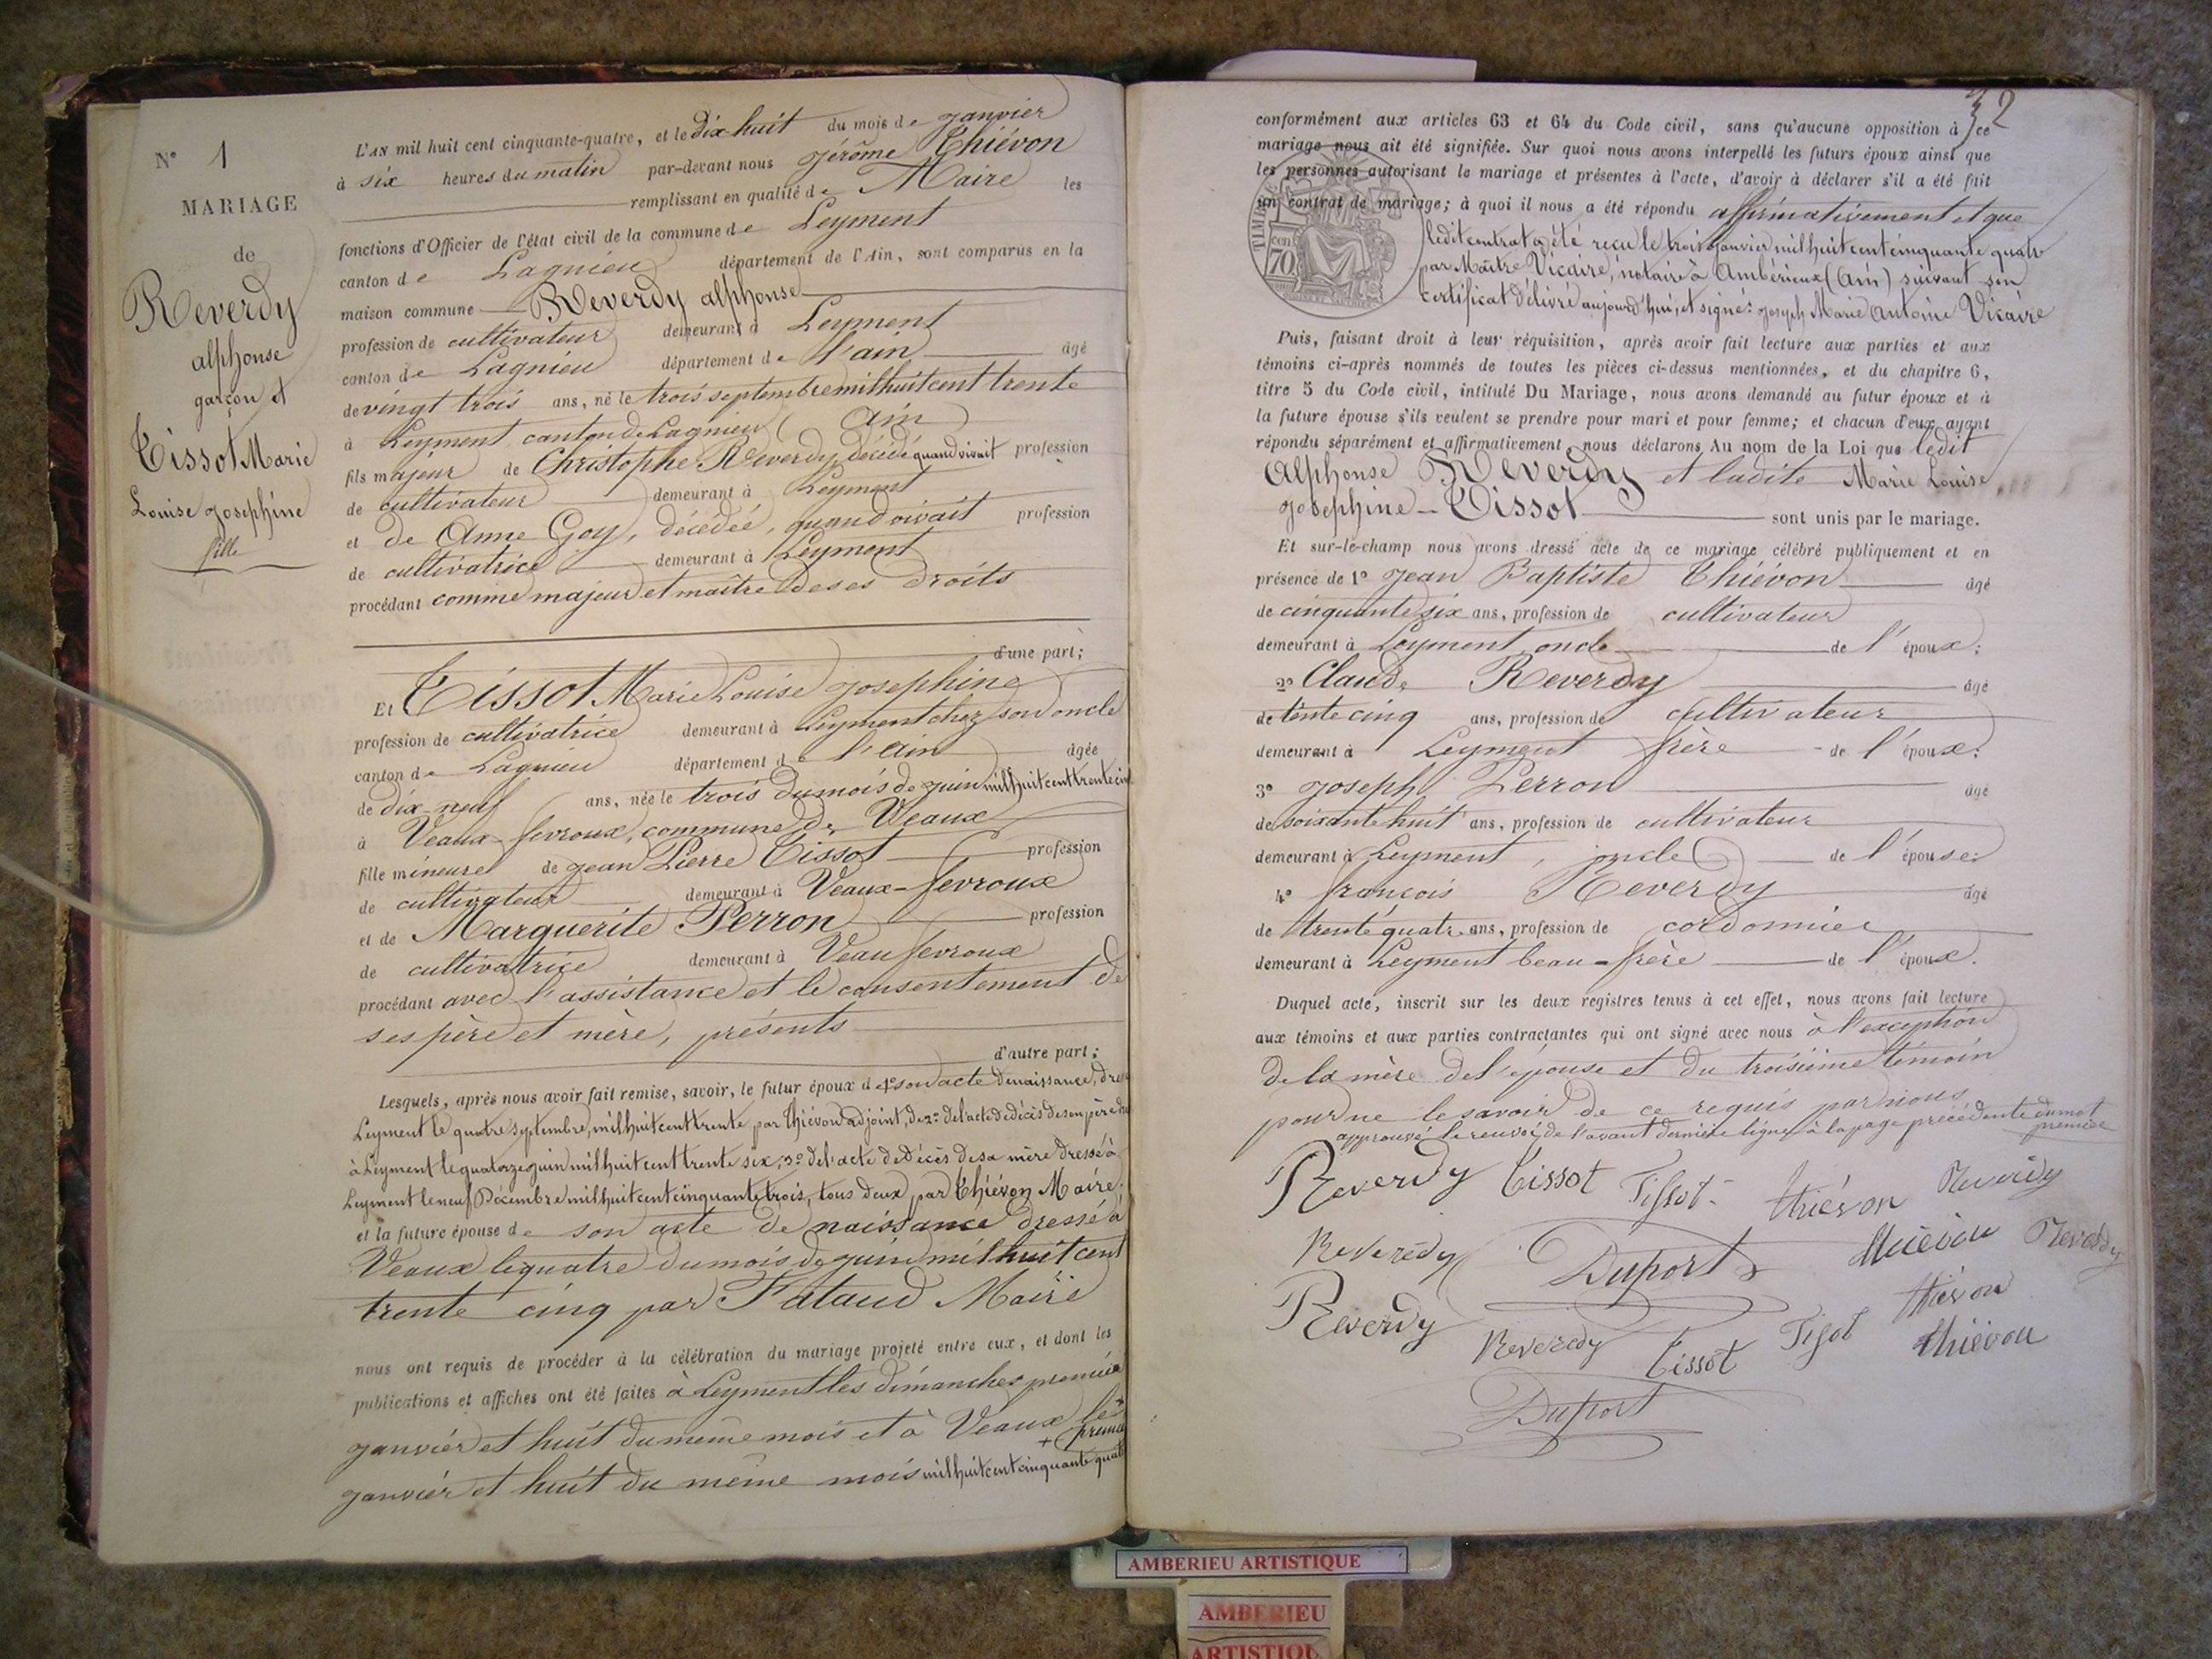 N° 1
MARIAGE
de
Reverdy
alphonse
garçon et
Tissot Marie
Louise Josephine
fille
L'AN mil huit cent cinquante-quatre, et le dix huit du mois de janvier
à six heures du matin par-devant nous Jérôme Thiévon
remplissant en qualité de Maire les
fonctions d'Officier de l'état civil de la commune de Leyment
canton de Lagnieu département de l'Ain, sont comparus en la
maison commune Reverdy alphonse
profession de cultivateur demeurant à Leyment
canton de Lagnieu département de l'ain âgé
de vingt trois ans, né le trois septembre mil huit cent trente
à Leyment canton de Lagnieu (ain
fils majeur de Christophe Reverdy, décédé quand vivait profession
de cultivateur demeurant à Leyment
et de Anne Goy, décédée, quand vivait profession
de cultivatrice demeurant à Leyment
procédant comme majeur et maître de ses droits
d'une part;
Et Tissot Marie Louise Josephine
profession de cultivatrice demeurant à Leyment chez son oncle
canton de Lagnieu département de l'ain âgée
de dix-neuf ans, née le trois du mois de juin mil huit cent trente cinq
à Veaux-fevroux, commune de Veaux
fille mineure de Jean Pierre Tissot profession
de cultivateur demeurant à Veaux-fevroux
et de Marguerite Perron profession
de cultivatrice demeurant à Veau fevroux
procédant avec l'assistance et le consentement de
ses père et mère, présents
d'autre part;
Lesquels, après nous avoir fait remise, savoir, le futur époux de 1° son acte de naissance, dressé
Leyment le quatre septembre, mil huit cent trente par Thiévon adjoint, de 2° de l'acte de décès de son père
à Leyment le quatorze juin mil huit cent trente six, 3° de l'acte de décès de sa mère dressé à
Leyment le neuf Décembre mil huit cent cinquante trois, tous deux par Thiévon Maire.
et la future épouse de son acte de naissance dressé à
Veaux le quatre du mois de juin mil huit cent
trente cinq par Fataud Maire
nous ont requis de procéder à la célébration du mariage projeté entre eux, et dont les
publications et affiches ont été faites à Leyment les dimanches premier
janvier et huit du même mois et à Veaux les
+ premier
janvier et huit du même mois mil huit cent cinquante quatre
32
conformément aux articles 63 et 64 du Code civil, sans qu'aucune opposition à ce
mariage nous ait été signifiée. Sur quoi nous avons interpellé les futurs époux ainsi que
les personnes autorisant le mariage et présentes à l'acte, d'avoir à déclarer s'il a été fait
un contrat de mariage; à quoi il nous a été répondu affirmativement et que
ledit contrat a été reçu le trois janvier mil huit cent cinquante quatre
par Maître Vicaire, notaire à Ambérieux (Ain) suivant son
certificat délivré aujourd'hui, et signé: Joseph Marie Antoine Vicaire
TIMBRE
cen
70
Puis, faisant droit à leur réquisition, après avoir fait lecture aux parties et aux
témoins ci-après nommés de toutes les pièces ci-dessus mentionnées, et du chapitre 6,
titre 5 du Code civil, intitulé Du Mariage, nous avons demandé au futur époux et à
la future épouse s'ils veulent se prendre pour mari et pour femme; et chacun d'eux ayant
répondu séparément et affirmativement, nous déclarons Au nom de la Loi que ledit
Alphonse Reverdy et ladite Marie Louise
Josephine Tissot sont unis par le mariage.
Et sur-le-champ nous avons dressé acte de ce mariage célébré publiquement et en
présence de 1° Jean Baptiste Thiévon âgé
de cinquante six ans, profession de cultivateur
demeurant à Leyment, oncle de l'époux;
2° Claude Reverdy âgé
de tente cinq ans, profession de cultivateur
demeurant à Leyment frère de l'époux;
3° Joseph Perron âgé
de soixante huit ans, profession de cultivateur
demeurant à Leyment, oncle de l'épouse;
4° françois Reverdy âgé
de trente quatre ans, profession de cordonnier
demeurant à Leyment beau-frère de l'époux.
Duquel acte, inscrit sur les deux registres tenus à cet effet, nous avons fait lecture
aux témoins et aux parties contractantes qui ont signé avec nous à l'exception
de la mère de l'épouse et du troisième témoin
pour ne le savoir de ce requis par nous
approuvé le renvoi de l'avant dernière ligne à la page précédente du mot
premier
Reverdy Tissot Tissot Thiévon Reverdy
Reverdy Duport Thiévon Reverdy
Reverdy Reverdy Tissot Tissot Thiévon
Thiévon
Duport
AMBERIEU ARTISTIQUE
AMBERIEU
ARTISTIQU